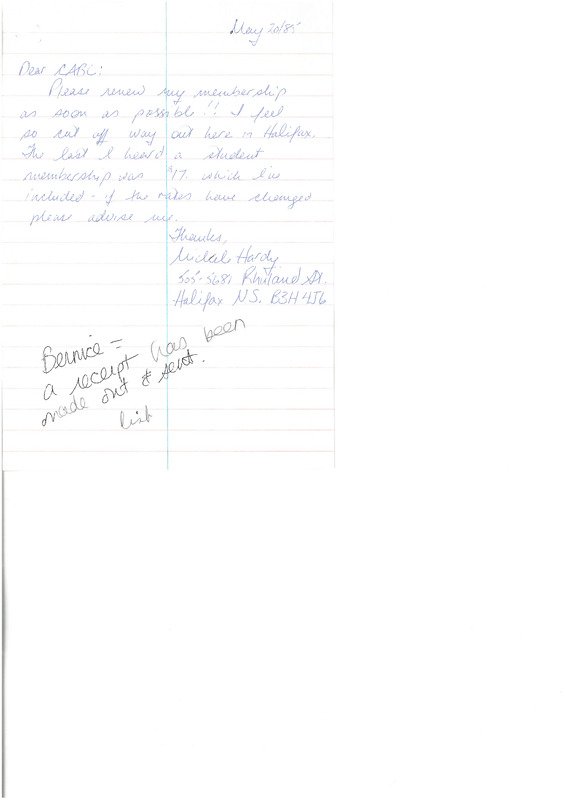 May 20/85
Dear CARL:
Please renew my membership
as soon as possible!! I feel
so cut off way out here in Halifax.
The last I heard a student
membership was $17. which I've
included - if the rates have changed
please advise me.
Thanks,
Hardy
5681 St.
Halifax N.S. B3H 4J6
Bernice =
a receipt has been
made out & sent.